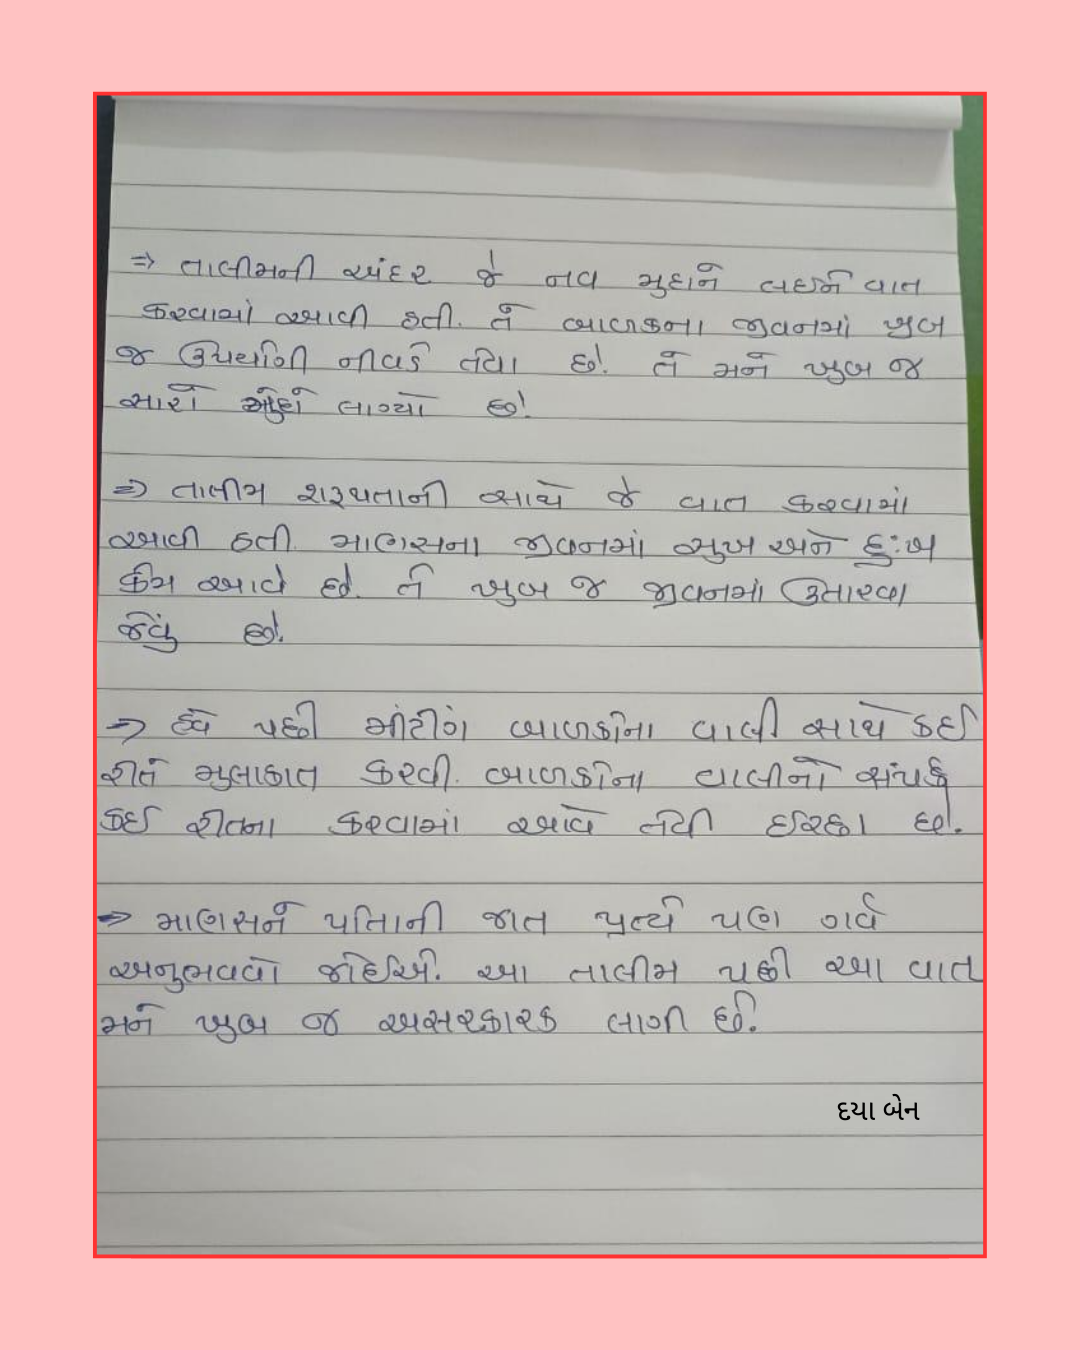 ⇒ તાલીમની અંદર જે નવ મુદાને લઇને વાત
કરવામાં આવી હતી. તે બાળકના જીવનમાં ખુબ
જ ઉપયોગી નીવડે તેવા છે. તે મને ખુબ જ
સારો મુદો લાગ્યો છે.
⇒ તાલીમ શરૂયતાની સાથે જે વાત કરવામાં
આવી હતી. માણસના જીવનમાં સુખ અને દુ:ખ
કેમ આવે છે. તે ખુબ જ જીવનમાં ઉતારવા
જેવું છે.
⇒ હવે પછી મીટીંગ બાળકોના વાલી સાથે કઈ
રીતે મુલાકાત કરવી. બાળકોના વાલીનો સંપર્ક
કઈ રીતના કરવામાં આવે તેવી ઈરછા છે.
⇒ માણસને પોતાની જાત પ્રત્યે પણ ગર્વ
અનુભવવો જોઈએ. આ તાલીમ પછી આ વાત
મને ખુબ જ અસરકારક લાગી છે.
દયા બેન